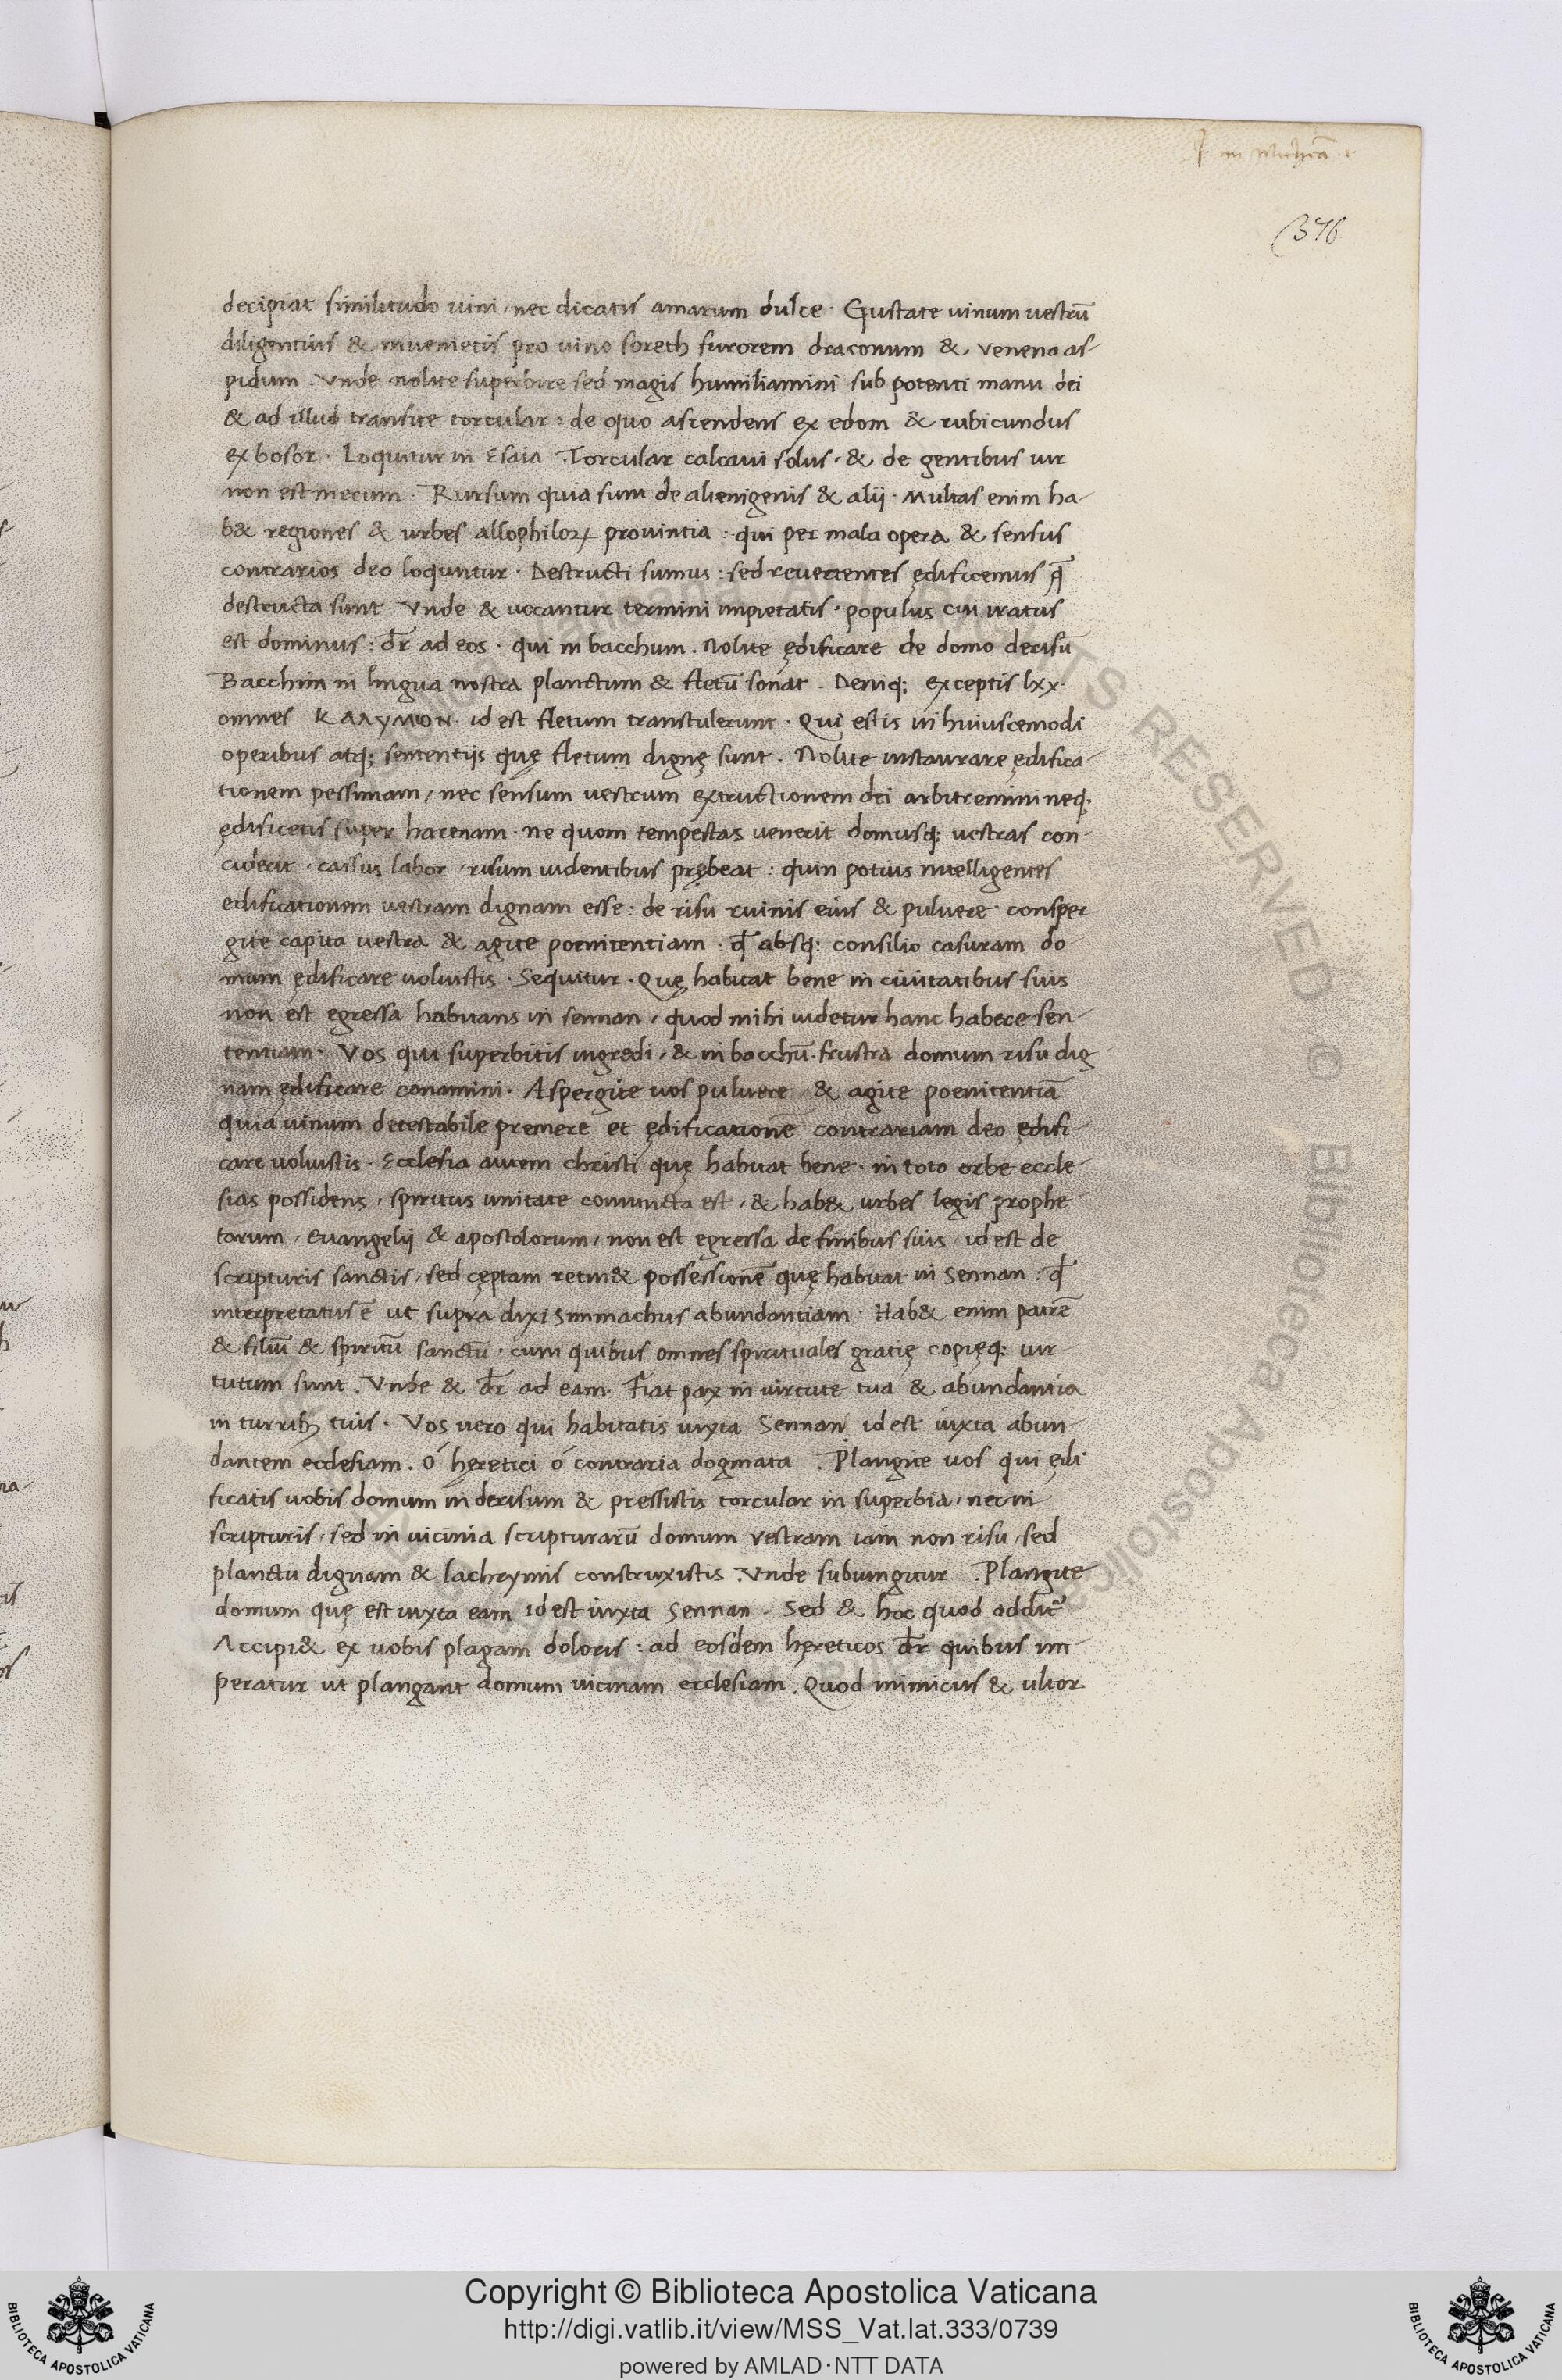 P. in Micheā .1.
376
decipiat similitudo uini, nec dicatis amarum dulce. Gustate uinum uestrū
diligentius & inuenietis pro uino soreth furorem draconum & venena as-
pidum. Vnde nolite superbire sed magis humiliamini sub potenti manu dei
& ad illud transite torcular: de quo ascendens ex edom & rubicundus
ex bosor. Loquitur in Esaia. Torcular calcaui solus, & de gentibus uir
non est mecum. Rursum quia sunt de alienigenis & alij. Multas enim ha-
b& regiones & urbes allophiloꝝ prouintia: qui per mala opera & sensus
contrarios deo loquntur. Destructi sumus: sed reuertentes ędificemus ꝙ
destructa sunt. Vnde & uocantur termini impietatis. populus cui iratus
est dominus: dr̄ ad eos. qui in bacchum. Nolite ędificare de domo derisū
Bacchim in lingua nostra planctum & fletū sonat. Deniq; exceptis lxx.
omnes ΚΛΑΥΜΟΝ. id est fletum transtulerunt. Qui estis in huiuscemodi
operibus atq; sententijs quę fletum dignę sunt. Nolite instaurare ędifica-
tionem pessimam, nec sensum uestrum extructionem dei arbitremini neq.
ędificetis super harenam. ne quom tempestas uenerit domusq; uestras con-
ciderit. cassus labor, risum uidentibus prębeat: quin potius intelligentes
edificationem uestram dignam esse: de risu ruinis eius & puluere consper
gite capita uestra & agite poenitentiam: ꝙ absq; consilio casuram do-
mum ędificare uoluistis. Sequitur. Quę habitat bene in ciuitatibus suis
non est egressa habitans in sennan, quod mihi uidetur hanc habere sen-
tentiam. Vos qui superbitis ingredi, & in bacchū. frustra domum risu dig
nam ędificare conamini. Aspergite uos puluere, & agite poenitentiā
quia uinum detestabile premere et ędificationē contrariam deo ędifi-
care uoluistis. Ecclesia autem christi quę habitat bene. in toto orbe eccle-
sias possidens, spiritus unitate coniuncta est, & hab& urbes legis prophe-
tarum, euangelij & apostolorum, non est egressa de finibus suis, id est de
scripturis sanctis, sed cęptam retin& possessionē quę habitat in Sennan: ꝙ
interpretatus ē ut supra dixi Simmachus abundantiam. Hab& enim patrē
& filiū & spiritū sanctū. cum quibus omnes spirituales gratię copięq; uir-
tutum sunt. Vnde & dr̄ ad eam. Fiat pax in uirtute tua & abundantia
in turribꝫ tuis. Vos uero qui habitatis iuxta Sennan id est iuxta abun-
dantem ecclesiam. ó hęretici ó contraria dogmata. Plangite uos qui ędi
ficatis uobis domum in derisum & pressistis torcular in superbia, nec in
scripturis, sed in uicinia scripturarū domum vestram iam non risu, sed
planctu dignam & lachrymis construxistis. Vnde subiungitur. Plangite
domum quę est iuxta eam id est iuxta Sennan. Sed & hoc quod additr̄
Accipi& ex uobis plagam doloris: ad eosdem hęreticos dr̄ quibus im-
peratur ut plangant domum uicinam ecclesiam. Quod inimicus & ultor
Copyright © Biblioteca Apostolica Vaticana
http://digi.vatlib.it/view/MSS_Vat.lat.333/0739
powered by AMLAD·NTT DATA